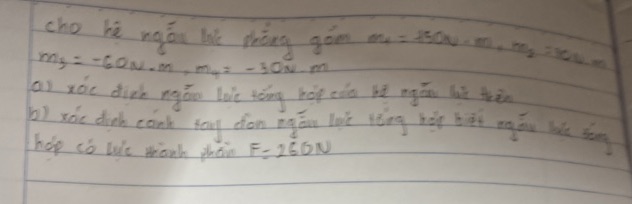 cho hệ ngẫu lực phẳng gồm m₁ = 150N.m, m₂ =
m₃ = -60N.m, m₄ = -30N.m
a) xác định ngẫu lực tổng hợp của hệ ngẫu lực trên
b) xác định cánh tay đòn ngẫu lực tổng hợp biết ngẫu lực tổng
hợp có lực thành phần F = 260N